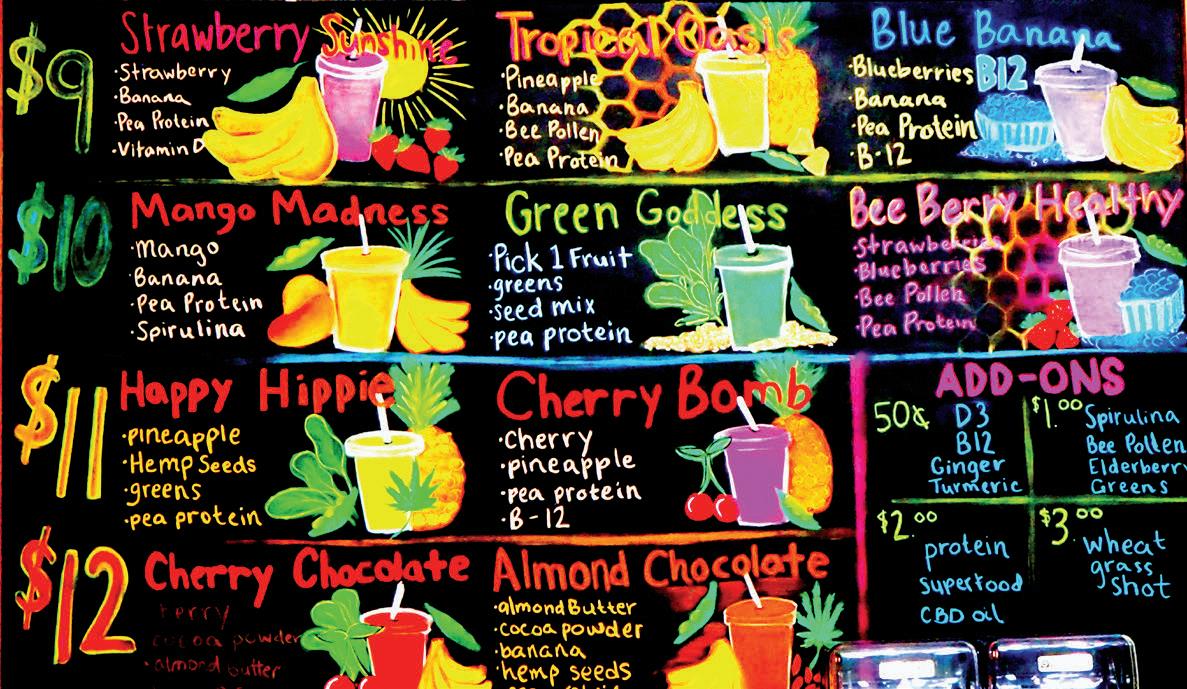 $9
Strawberry Sunshine
·Strawberry
·Banana
·Pea Protein
·Vitamin D
Tropical Oasis
·Pineapple
·Banana
·Bee Pollen
·Pea Protein
Blue Banana
·Blueberries B12
·Banana
·Pea Protein
·B-12
$10
Mango Madness
·Mango
·Banana
·Pea Protein
·Spirulina
Green Goddess
·Pick 1 Fruit
·greens
·seed mix
·pea protein
Bee Berry Healthy
·Strawberries
·Blueberries
·Bee Pollen
·Pea Protein
$11
Happy Hippie
·pineapple
·Hemp Seeds
·greens
·pea protein
Cherry Bomb
·Cherry
·pineapple
·pea protein
·B-12
ADD-ONS
50¢ D3
B12
Ginger
Turmeric
$1.00 Spirulina
Bee Pollen
Elderberry
Greens
$2.00
protein
superfood
CBD oil
$3.00
wheat
grass
shot
$12
Cherry Chocolate
cocoa powder
·almond butter
Almond Chocolate
·almond Butter
·cocoa powder
·banana
·hemp seeds